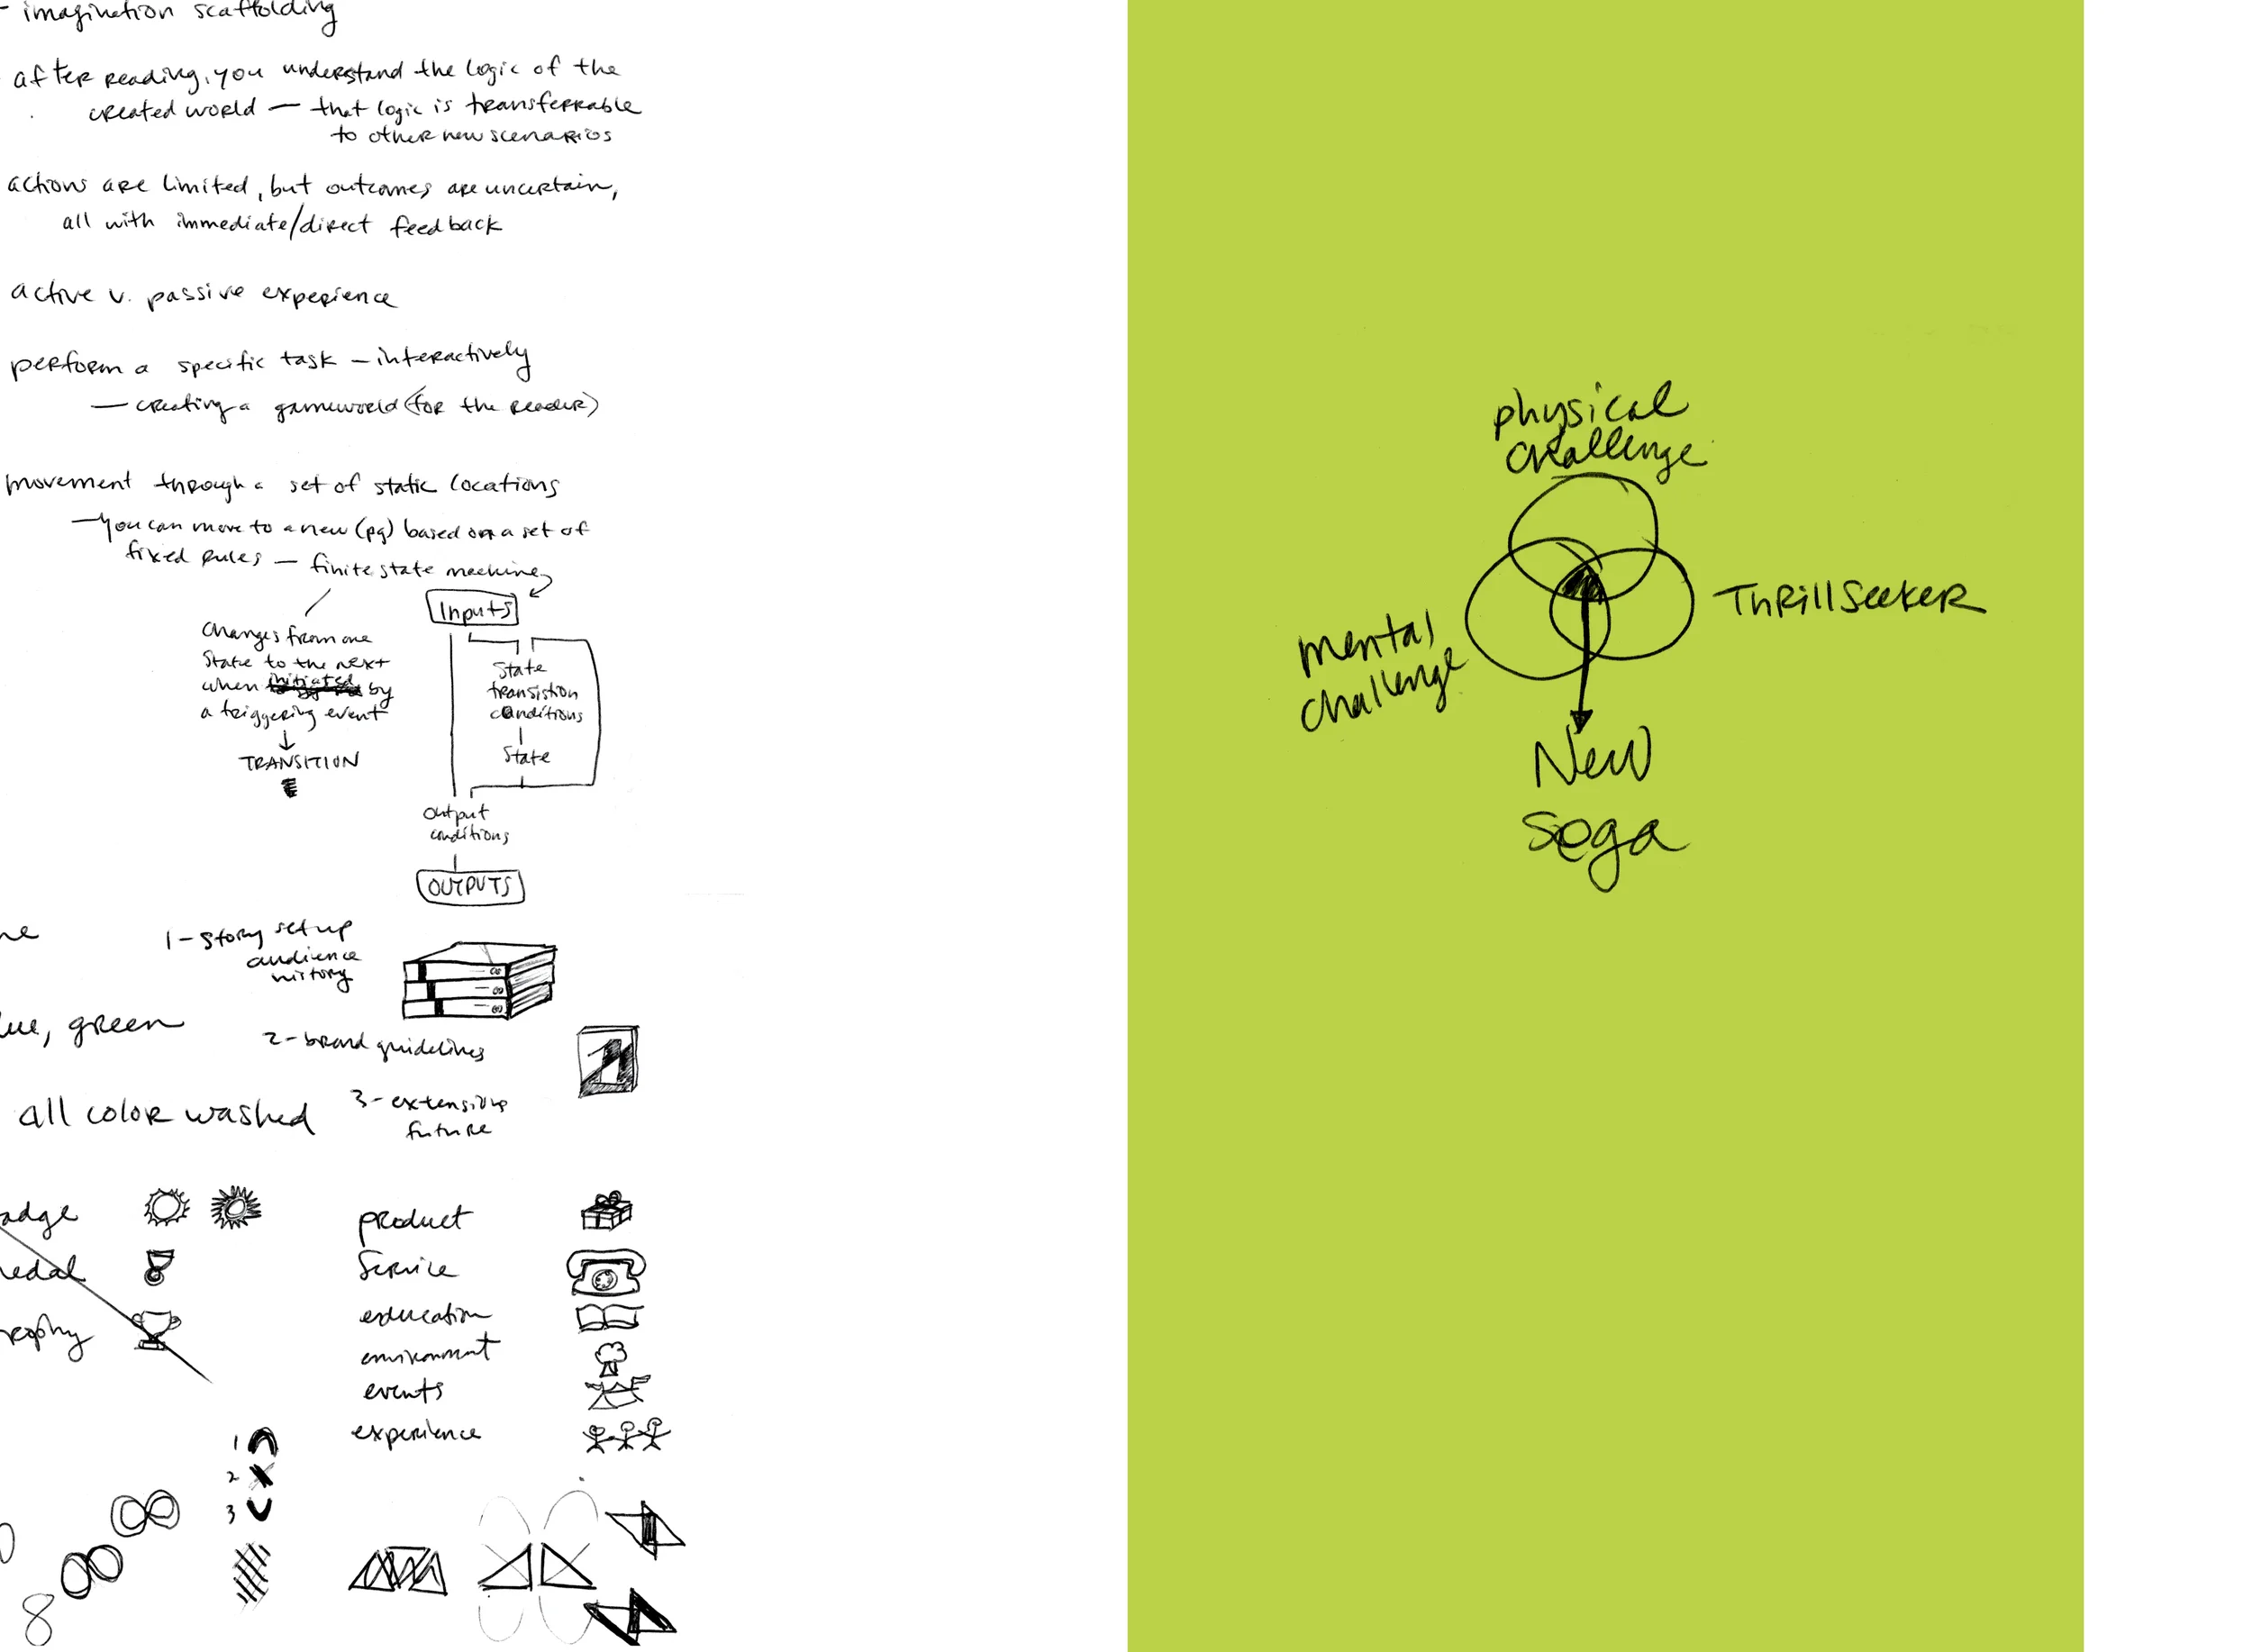 - imagination scaffolding
after reading, you understand the logic of the
created world — that logic is transferrable
to other new scenarios
actions are limited, but outcomes are uncertain,
all with immediate/direct feedback
active v. passive experience
perform a specific task — interactively
— creating a gameworld (for the reader)
movement through a set of static locations
— You can move to a new (pg) based on a set of
fixed rules — finite state machine
Changes from one
State to the next
when initiated by
a triggering event
TRANSITION
Inputs
State
transistion
conditions
State
Output
conditions
OUTPUTS
1 - story set up
audience
history
2 - brand guidelines
3 - extensions
future
ue, green
all color washed
adge
edal
rophy
product
Service
education
environment
events
experience
1
2
3
8
physical
challenge
Thrill Seeker
mental
challenge
New
Sega